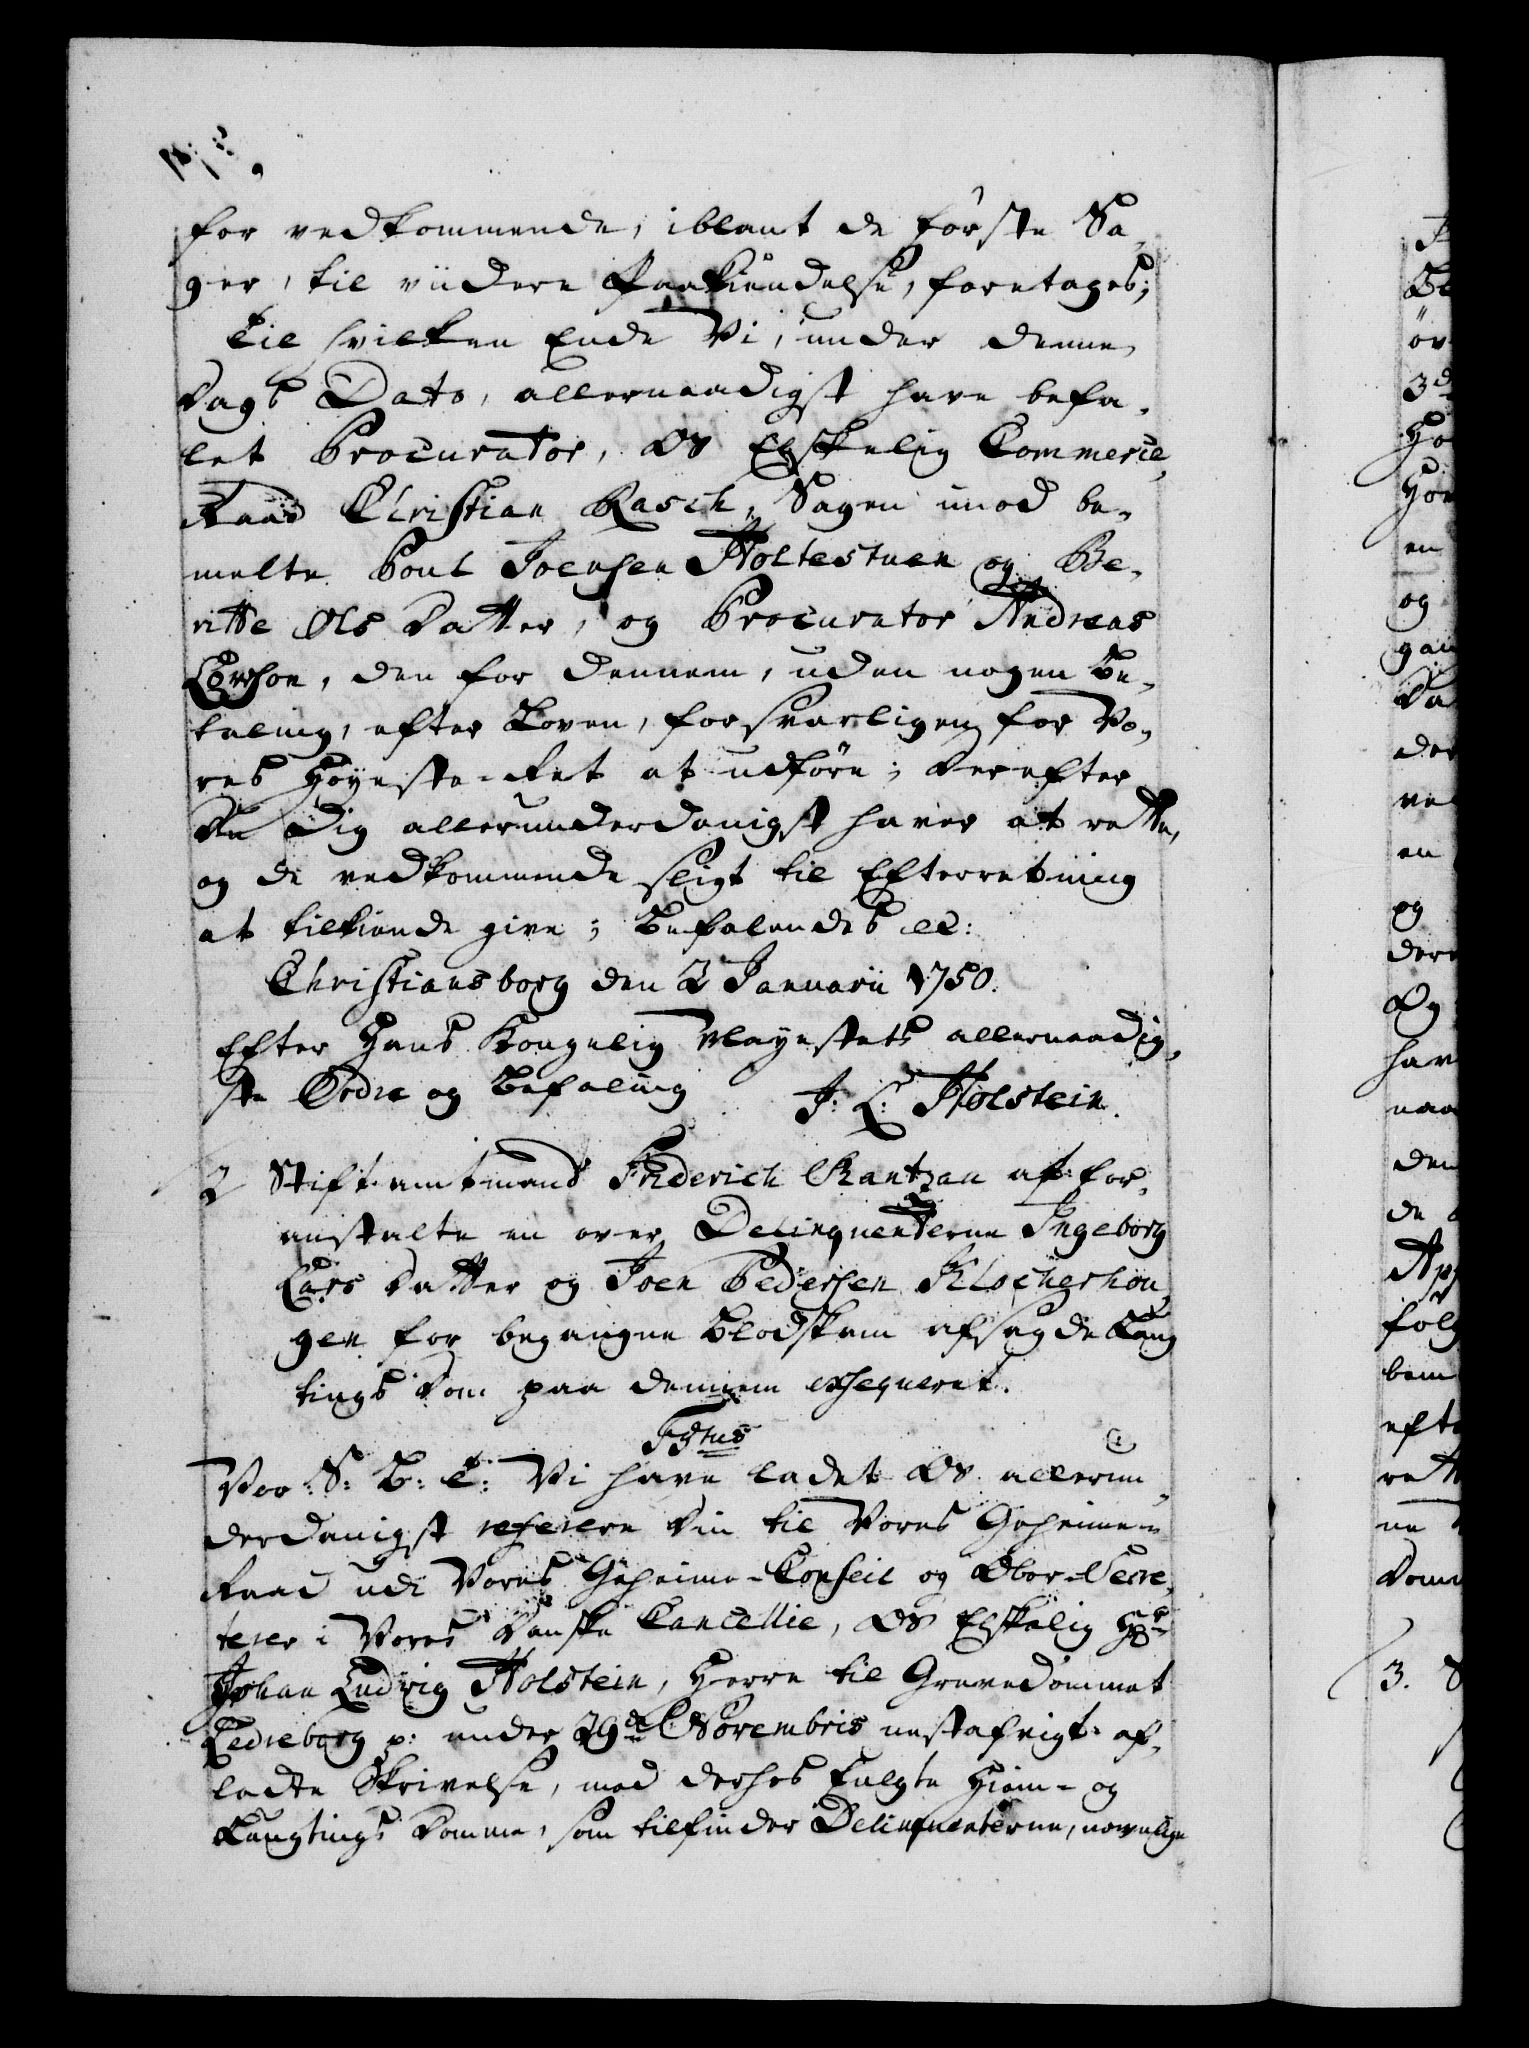 for vedkommende, iblant de første Sa„
ger, til viidere Paakiendelse, foretages;
Til hvilken Ende Vi, under denne
Dags Dato, allernaadigst have befa„
let Procurator, Os Elskelig Commerce„
Raad Christian Rasch, Sagen imod be„
melte Poul Joensen Holtestuen og Be„
ritte Ols Datter, og Procurator Andreas
den for dennem, uden nogen Be„
taling, efter Loven, forsvarligen for Vo„
res Høyeste-Ret at udføre; Derefter
Du Dig allerunderdanigst haver at rette,
og de vedkommende sligt til Efterretning
at tilkiende give; Befalendes etc:
Christiansborg den 2 Januarii 1750.
Efter Hans Kongelig Mayestets allernaadig„
ste Ordre og Befaling J: L: Holstein.
2 Stiftamtmand Friderich Rantzau at for„
anstalte en over Delinquenterne Ingeborg
Lars Datter og Joen Pedersen Klocherhou„
gen for begangne Blodskam afsagde Laug
tings Dom paa dennem exseqveret.
F 5tus
Vor S: B: T: Vi have ladet Os allerun„
derdanigst referere Din til Vores Geheime-
Raad udi Vores Geheime-Conseil og Ober-Secre„
terer i Vores Danske Cancellie, Os Elskelig Hr
Johan Ludvig Holstein, Herre til Grevedømmet
Ledreborg p: under 29de Novembris nestafvigt af„
ladte Skrivelse, med derhos fulgte Hiem- og
Laugtings Domme, som tilfinder Delinqventerne, nembligen